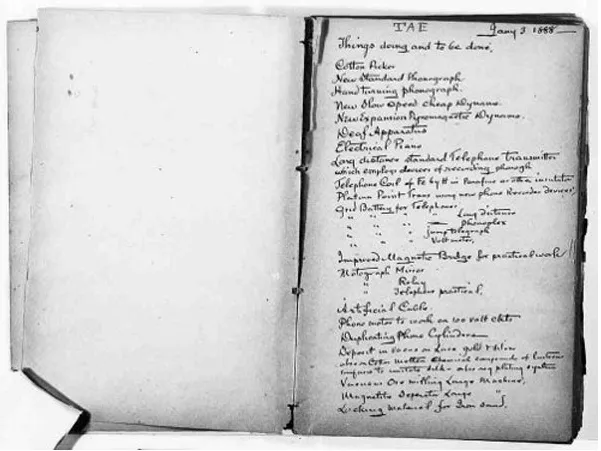 TAE Jany 3 1888
Things doing and to be done,
Cotton Picker
New Standard Phonograph
Hand turning phonograph.
New Slow Speed cheap Dynamo.
New Expansion Pyromagnetic Dynamo.
Deaf Apparatus
Electrical Piano
Long distance standard Telephone Transmitter
which employs devices of recording phonogh
Telephone Coil of Fe by tt in Parafine or other insulator
Platina Point Trans using new phone Recorder devices
Grid Battery for Telephones.
" " " " Long distance
" " " " Phonoplex
" " " Jump telegraph
" " " Voltmeter,
Improved Magnetic Bridge for practical work
Motograph Mirror
" Relay
" Telephone practical,
Artificial Cable
Phono motor to work on 100 volt ckts
Duplicating Phono Cylinders
Deposit in vacuo on Lace gold & silver
also on Cotton molten chemical compounds of lustrous
surfaces to imitate silk - also reg plating system
Various Ore milling Large Machine,
Magnetic Separator Large "
Locking material for Iron sand,